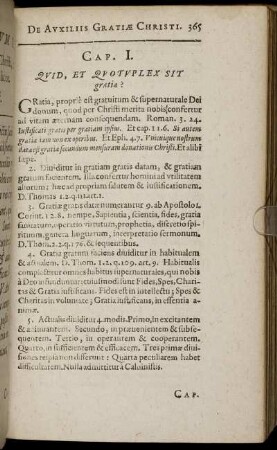 DE AVXILIIS GRATIÆ CHRISTI. 365
CAP. I.
QVID, ET QVOTVPLEX SIT
gratia?
GRatia, propriè est gratuitum & supernaturale Dei
donum, quod per Christi merita nobis confertur
ad vitam æternam consequendam. Roman. 3. 24.
Iustificati gratis per gratiam ipsius. Et cap. 11. 6. Si autem
gratia iam non ex operibus. Et Eph. 4. 7. Vnicuique nostrum
data est gratia secundum mensuram donationis Christi. Et alibi
sæpe.
2. Diuiditur in gratiam gratis datam, & gratiam
gratum facientem. Illa confertur homini ad vtilitatem
aliorum; hæc ad propriam salutem & iustificationem.
D. Thomas 1. 2. q. 111. art. 1.
3. Gratiæ gratis datæ numerantur 9. ab Apostolo 1.
Corint. 12. 8. nempe, Sapientia, scientia, fides, gratia
sanitatum, operatio virtutum, prophetia, discretio spi-
rituum, genera linguarum, interpretatio sermonum,
D. Thom. 2. 2. q. 176. & sequentibus.
4. Gratia gratum faciens diuiditur in habitualem
& actualem. D. Thom. 1. 2. q. 109. art. 9. Habitualis
complectitur omnes habitus supernaturales, qui nobis
à Deo infunduntur: cuiusmodi sunt Fides, Spes, Chari-
tas & Gratia iustificans. Fides est in intellectu; Spes &
Charitas in voluntate; Gratia iustificans, in essentia a-
nimæ.
5. Actualis diuiditur 4. modis. Primo, in excitantem
& adiuuantem. Secundo, in præuenientem & subse-
quentem. Tertio, in operantem & cooperantem.
Quarto, in sufficientem & efficacem. Tres primæ diui-
siones re ipsa non differunt: Quarta peculiarem habet
difficultatem. Nulla admittitur à Caluinistis.
CAP.